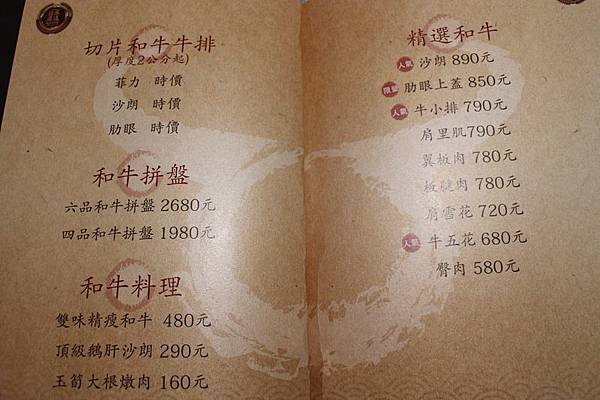 切片和牛牛排
(厚度2公分起)
菲力 時價
沙朗 時價
肋眼 時價
和牛拼盤
六品和牛拼盤 2680元
四品和牛拼盤 1980元
和牛料理
雙味精瘦和牛 480元
頂級鵝肝沙朗 290元
玉筍大根燉肉 160元
精選和牛
人氣 沙朗 890元
限量 肋眼上蓋 850元
人氣 牛小排 790元
肩里肌790元
翼板肉 780元
板腱肉 780元
肩雪花 720元
人氣 牛五花 680元
臀肉 580元